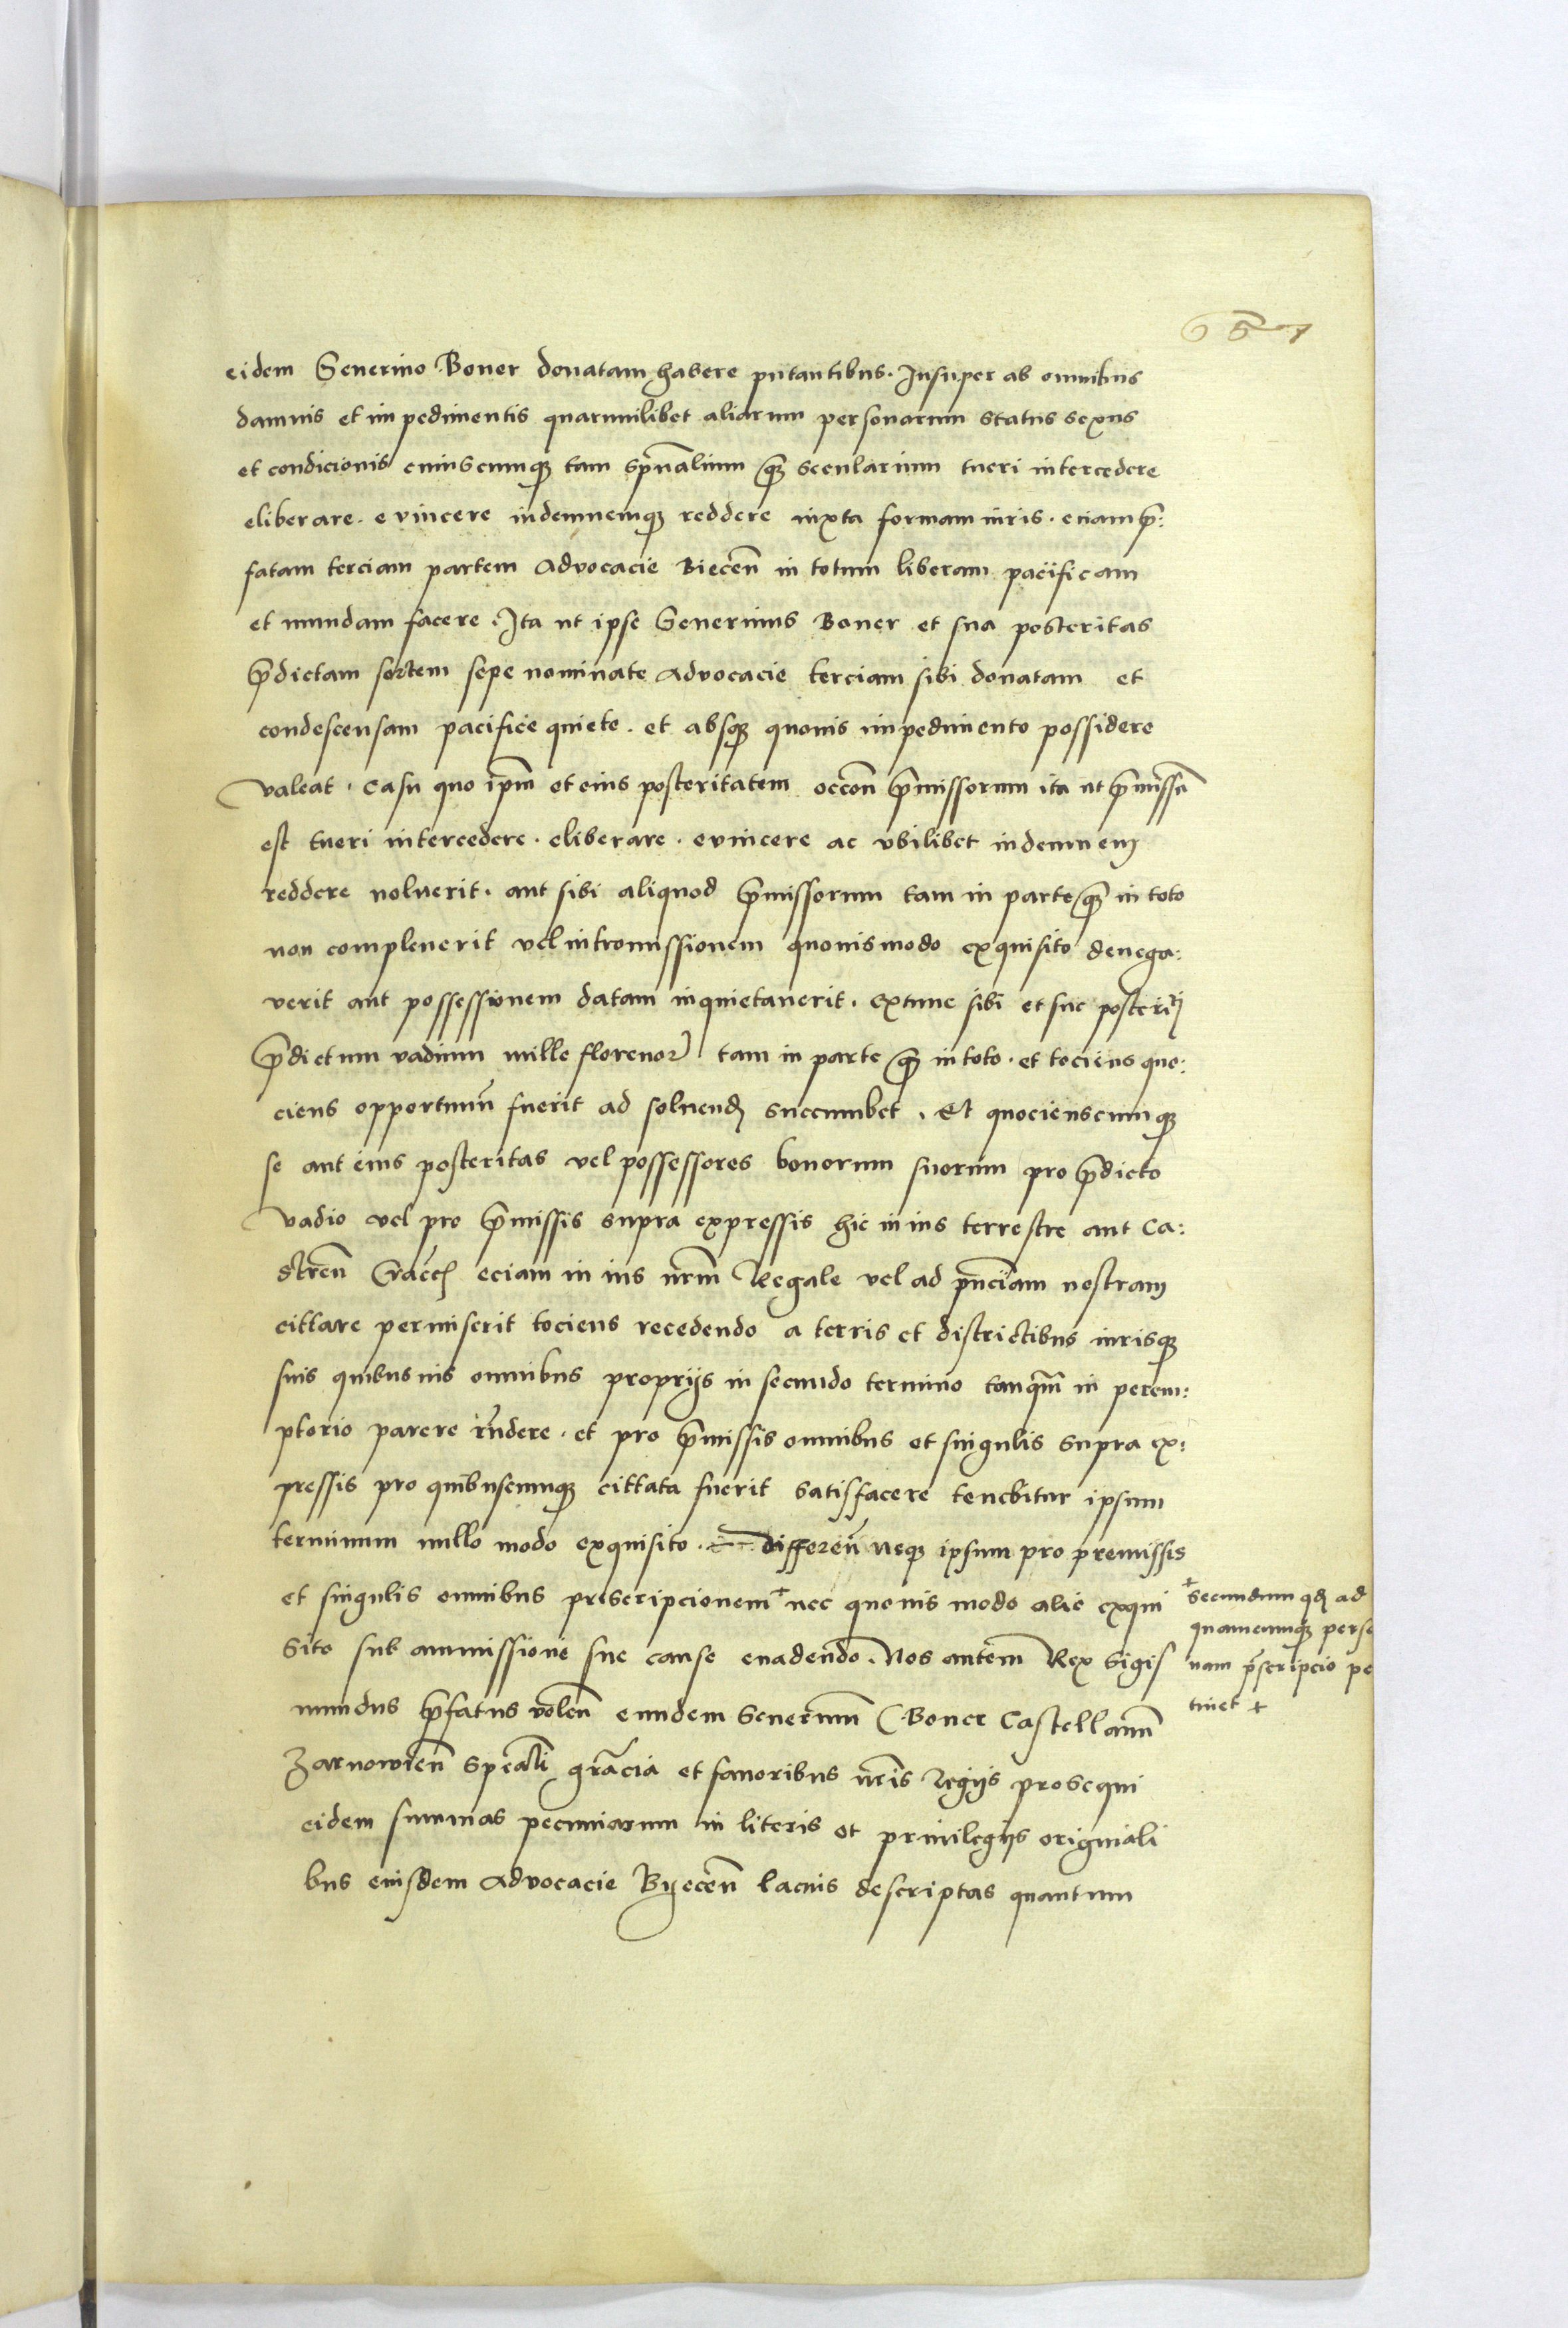 657
eidem Severino Boner donatam habere putantibus. Insuper ab omnibus
damnis et impedimentis quarumlibet aliarum personarum status sexus
et condicionis cuiuscumqȝ tam spũalium qȝ secularium tueri intercedere
eliberare. evincere indemnemqȝ reddere iuxta formam iuris. eciam p̃:
fatam terciam partem Advocacie Biecen̄ in totum liberam pacificam
et mundam facere. Ita ut ipse Severinus Boner et sua posteritas
p̃dictam sortem sepe nominate Advocacie terciam sibi donatam et
condescensam pacifice quiete. et absqȝ quovis impedimento possidere
valeat. Casu quo ip̄m et eius posteritatem occōn p̃missorum ita ut p̃missū
est tueri intercedere. eliberare. evincere ac ubilibet indemnem
reddere noluerit. aut sibi aliquod p̃missorum tam in parte qȝ in toto
non compleverit vel intromissionem quovismodo exquisito denega:
verit aut possessionem datam inquietaverit. extunc sibi et sue posterit̃i
p̃dictum vadium mille florenoꝝ tam in parte qȝ in toto. et tociens quo:
ciens opportunū fuerit ad solvend̃ succumbet. Et quocienscumqȝ
se aut eius posteritas vel possessores bonorum suorum pro p̃dicto
vadio vel pro p̃missis supra expressis hic in ius terrestre aut Ca:
stren̄ Cracc̃ eciam in ius nr̄m Regale vel ad pn̄ciam nostram
cittare permiserit tociens recedendo a terris et districtibus iurisqȝ
suis quibusvis omnibus proprijs in secundo termino tanqm̄ in perem:
ptorio parere rn̄dere. et pro p̃missis omnibus et singulis supra ex:
pressis pro quibuscumqȝ cittata fuerit satisfacere tenebitur ipsum
terminum nullo modo exquisito. differen̄ neqȝ ipsum pro premissis
et singulis omnibus prescripcionem + nec quovis modo alio exqui
sito sub ammissione sue cause evadendo. Nos autem Rex Sigis
mundus p̃fatus volen̄ eundem Severinū Boner Castellanū
Zarnowien̄ spēali grācia et favoribus nr̄is Regijs prosequi
eidem summas pecuniarum in literis et privilegijs originali
bus eiusdem Advocacie Byecen̄ lacius descriptas quantum
+ secundum qd̃ ad
quamcumqȝ perso
nam p̃scripcio pe
tinet +